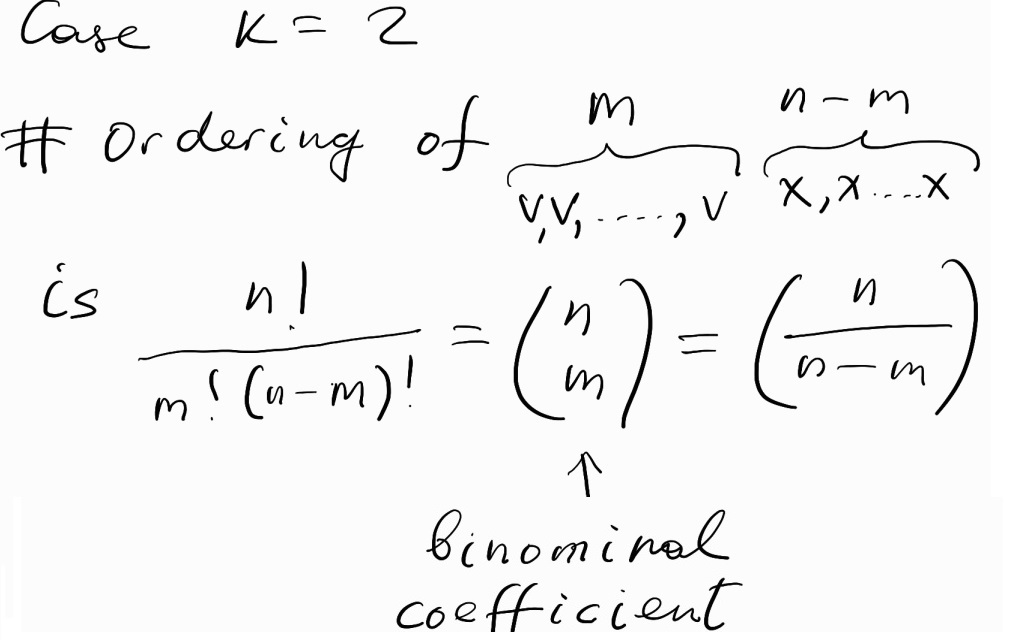 Case K = 2
# Ordering of m n - m
v,v, ....., v x, x ..... x
is n! / m! (n-m)! = (n m) = (n / n-m)
↑
binominal
coefficient